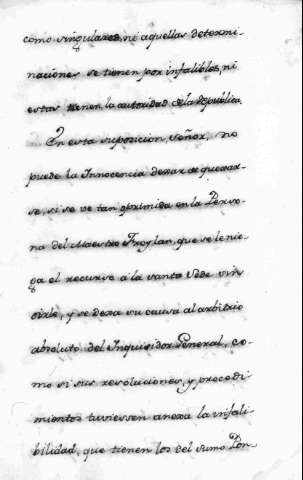 como singulares, ni aquellas determi-
naciones se tienen por infalibles, ni
estas tienen la autoridad de la republica.
En esta suposicion, Señor, no
puede la Innocencia dexar de quexar-
se, si se ve tan oprimida en la Perso-
na del Maestro Froylan, que se le nie-
ga el recurso a la santa Sede
y se dexa su causa al arbitrio
absoluto del Inquisidor General, co-
mo si sus resoluciones, y procedi-
mientos tuviessen anexa la infali-
bilidad, que tienen los del sumo Pon-